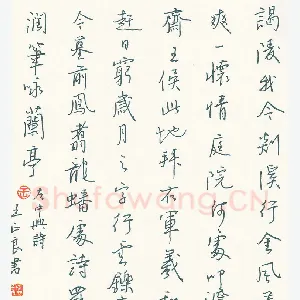 謁陵我今剡溪行金風
爽一懷情庭院何處叩
齋王侯此地拜右軍羲和
赶日窮歲月之字行雲鑠
今墓前鳳翥龍蟠處詩
潤筆咏蘭亭
詩
王正良書
Shufawang.CN